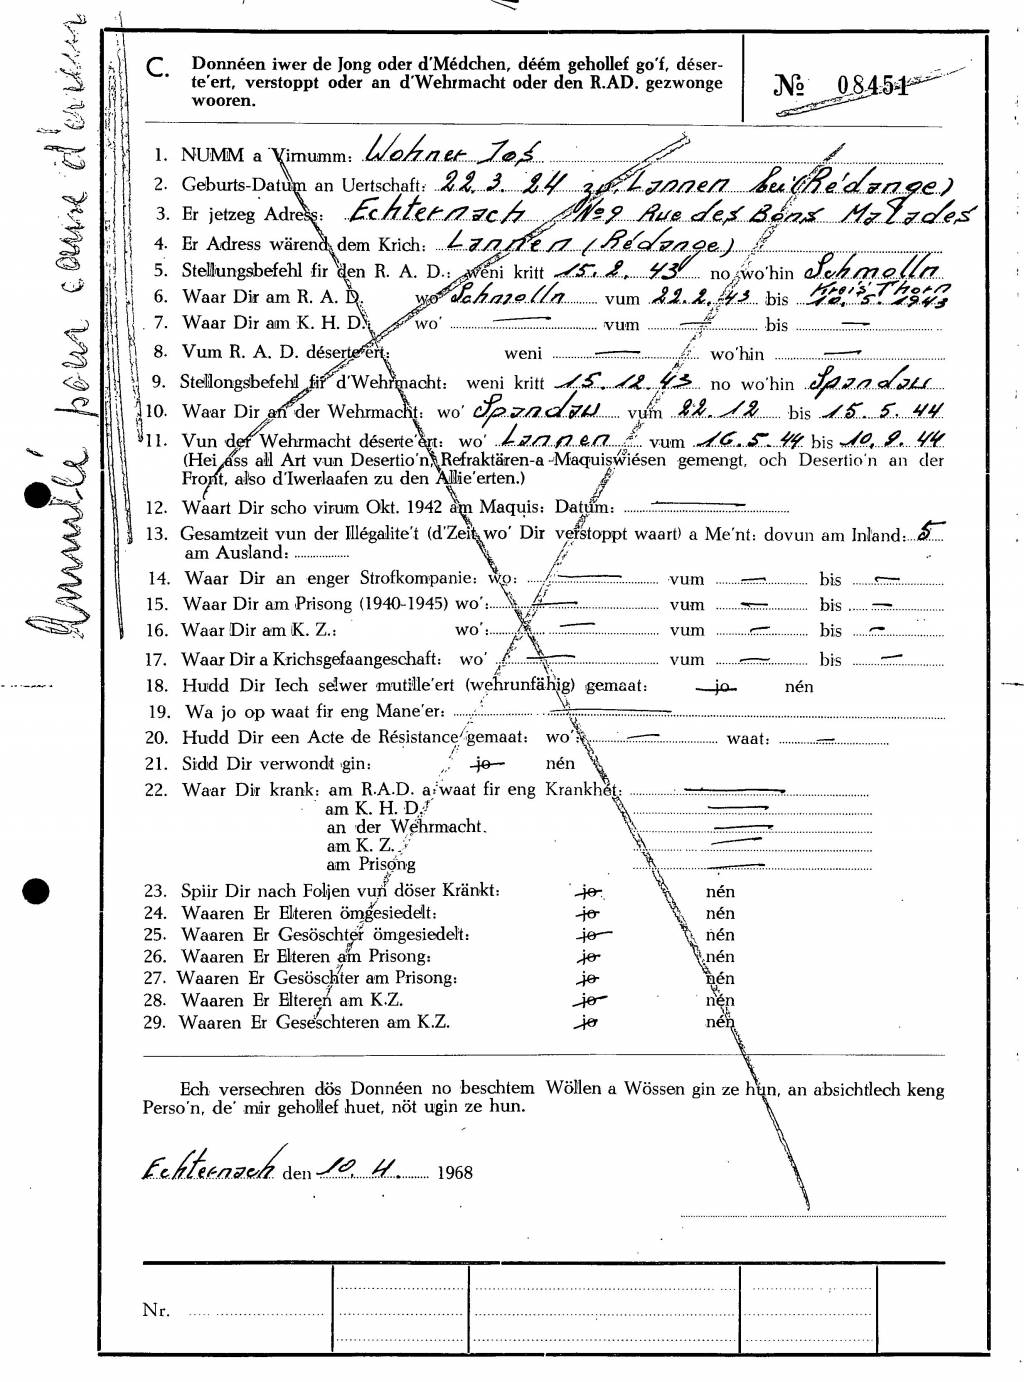 Annulé pour cause d'erreur
C. Donnéen iwer de Jong oder d'Médchen, déém gehollef go'f, déser-
te'ert, verstoppt oder an d'Wehrmacht oder den R.AD. gezwonge
wooren.
№ 08451
1. NUMM a Virnumm: Wohner Jos
2. Geburts-Datum an Uertschaft: 22.3.24 zu Lannen bei (Rédange)
3. Er jetzeg Adress: Echternach №9 Rue des Bons Malades
4. Er Adress wärend dem Krich: Lannen (Rédange)
5. Stellungsbefehl fir den R. A. D.: weni kritt 15.2.43 no wo'hin Schmolln
Kreis Thorn
6. Waar Dir am R. A. D. wo' Schmolln vum 22.2.43 bis 10.5.1943
7. Waar Dir am K. H. D.: wo' — vum — bis —
8. Vum R. A. D. déserte'ert: weni — wo'hin —
9. Stellongsbefehl fir d'Wehrmacht: weni kritt 15.12.43 no wo'hin Spandau
10. Waar Dir an der Wehrmacht: wo' Spandau vum 22.12 bis 15.5.44
11. Vun der Wehrmacht déserte'ert: wo' Lannen vum 16.5.44 bis 10.9.44
(Hei ass all Art vun Desertio'n, Refraktären-a -Maquiswiésen gemengt, och Desertio'n an der
Front, also d'Iwerlaafen zu den Allie'erten.)
12. Waart Dir scho virum Okt. 1942 am Maquis: Datum: —
13. Gesamtzeit vun der Illégalite't (d'Zeit wo' Dir verstoppt waart) a Me'nt: dovun am Inland: 5
am Ausland:
14. Waar Dir an enger Strofkompanie: wo: — vum — bis —
15. Waar Dir am Prisong (1940-1945) wo': — vum — bis —
16. Waar Dir am K. Z.: wo': — vum — bis —
17. Waar Dir a Krichsgefaangeschaft: wo' — vum — bis —
18. Hudd Dir Iech selwer mutille'ert (wehrunfähig) gemaat: jo nén
19. Wa jo op waat fir eng Mane'er: —
20. Hudd Dir een Acte de Résistance gemaat: wo': — waat: —
21. Sidd Dir verwondt gin: jo nén
22. Waar Dir krank: am R.A.D. a waat fir eng Krankhét: —
am K. H. D. —
an der Wehrmacht. —
am K. Z. —
am Prisong —
23. Spiir Dir nach Foljen vun döser Kränkt: jo nén
24. Waaren Er Elteren ömgesiedelt: jo nén
25. Waaren Er Gesöschter ömgesiedelt: jo nén
26. Waaren Er Elteren am Prisong: jo nén
27. Waaren Er Gesöschter am Prisong: jo nén
28. Waaren Er Elteren am K.Z. jo nén
29. Waaren Er Geseschteren am K.Z. jo nén
Ech versechren dös Donnéen no beschtem Wöllen a Wössen gin ze hun, an absichtlech keng
Perso'n, de' mir gehollef huet, nöt ugin ze hun.
Echternach den 10.4. 1968
Nr.